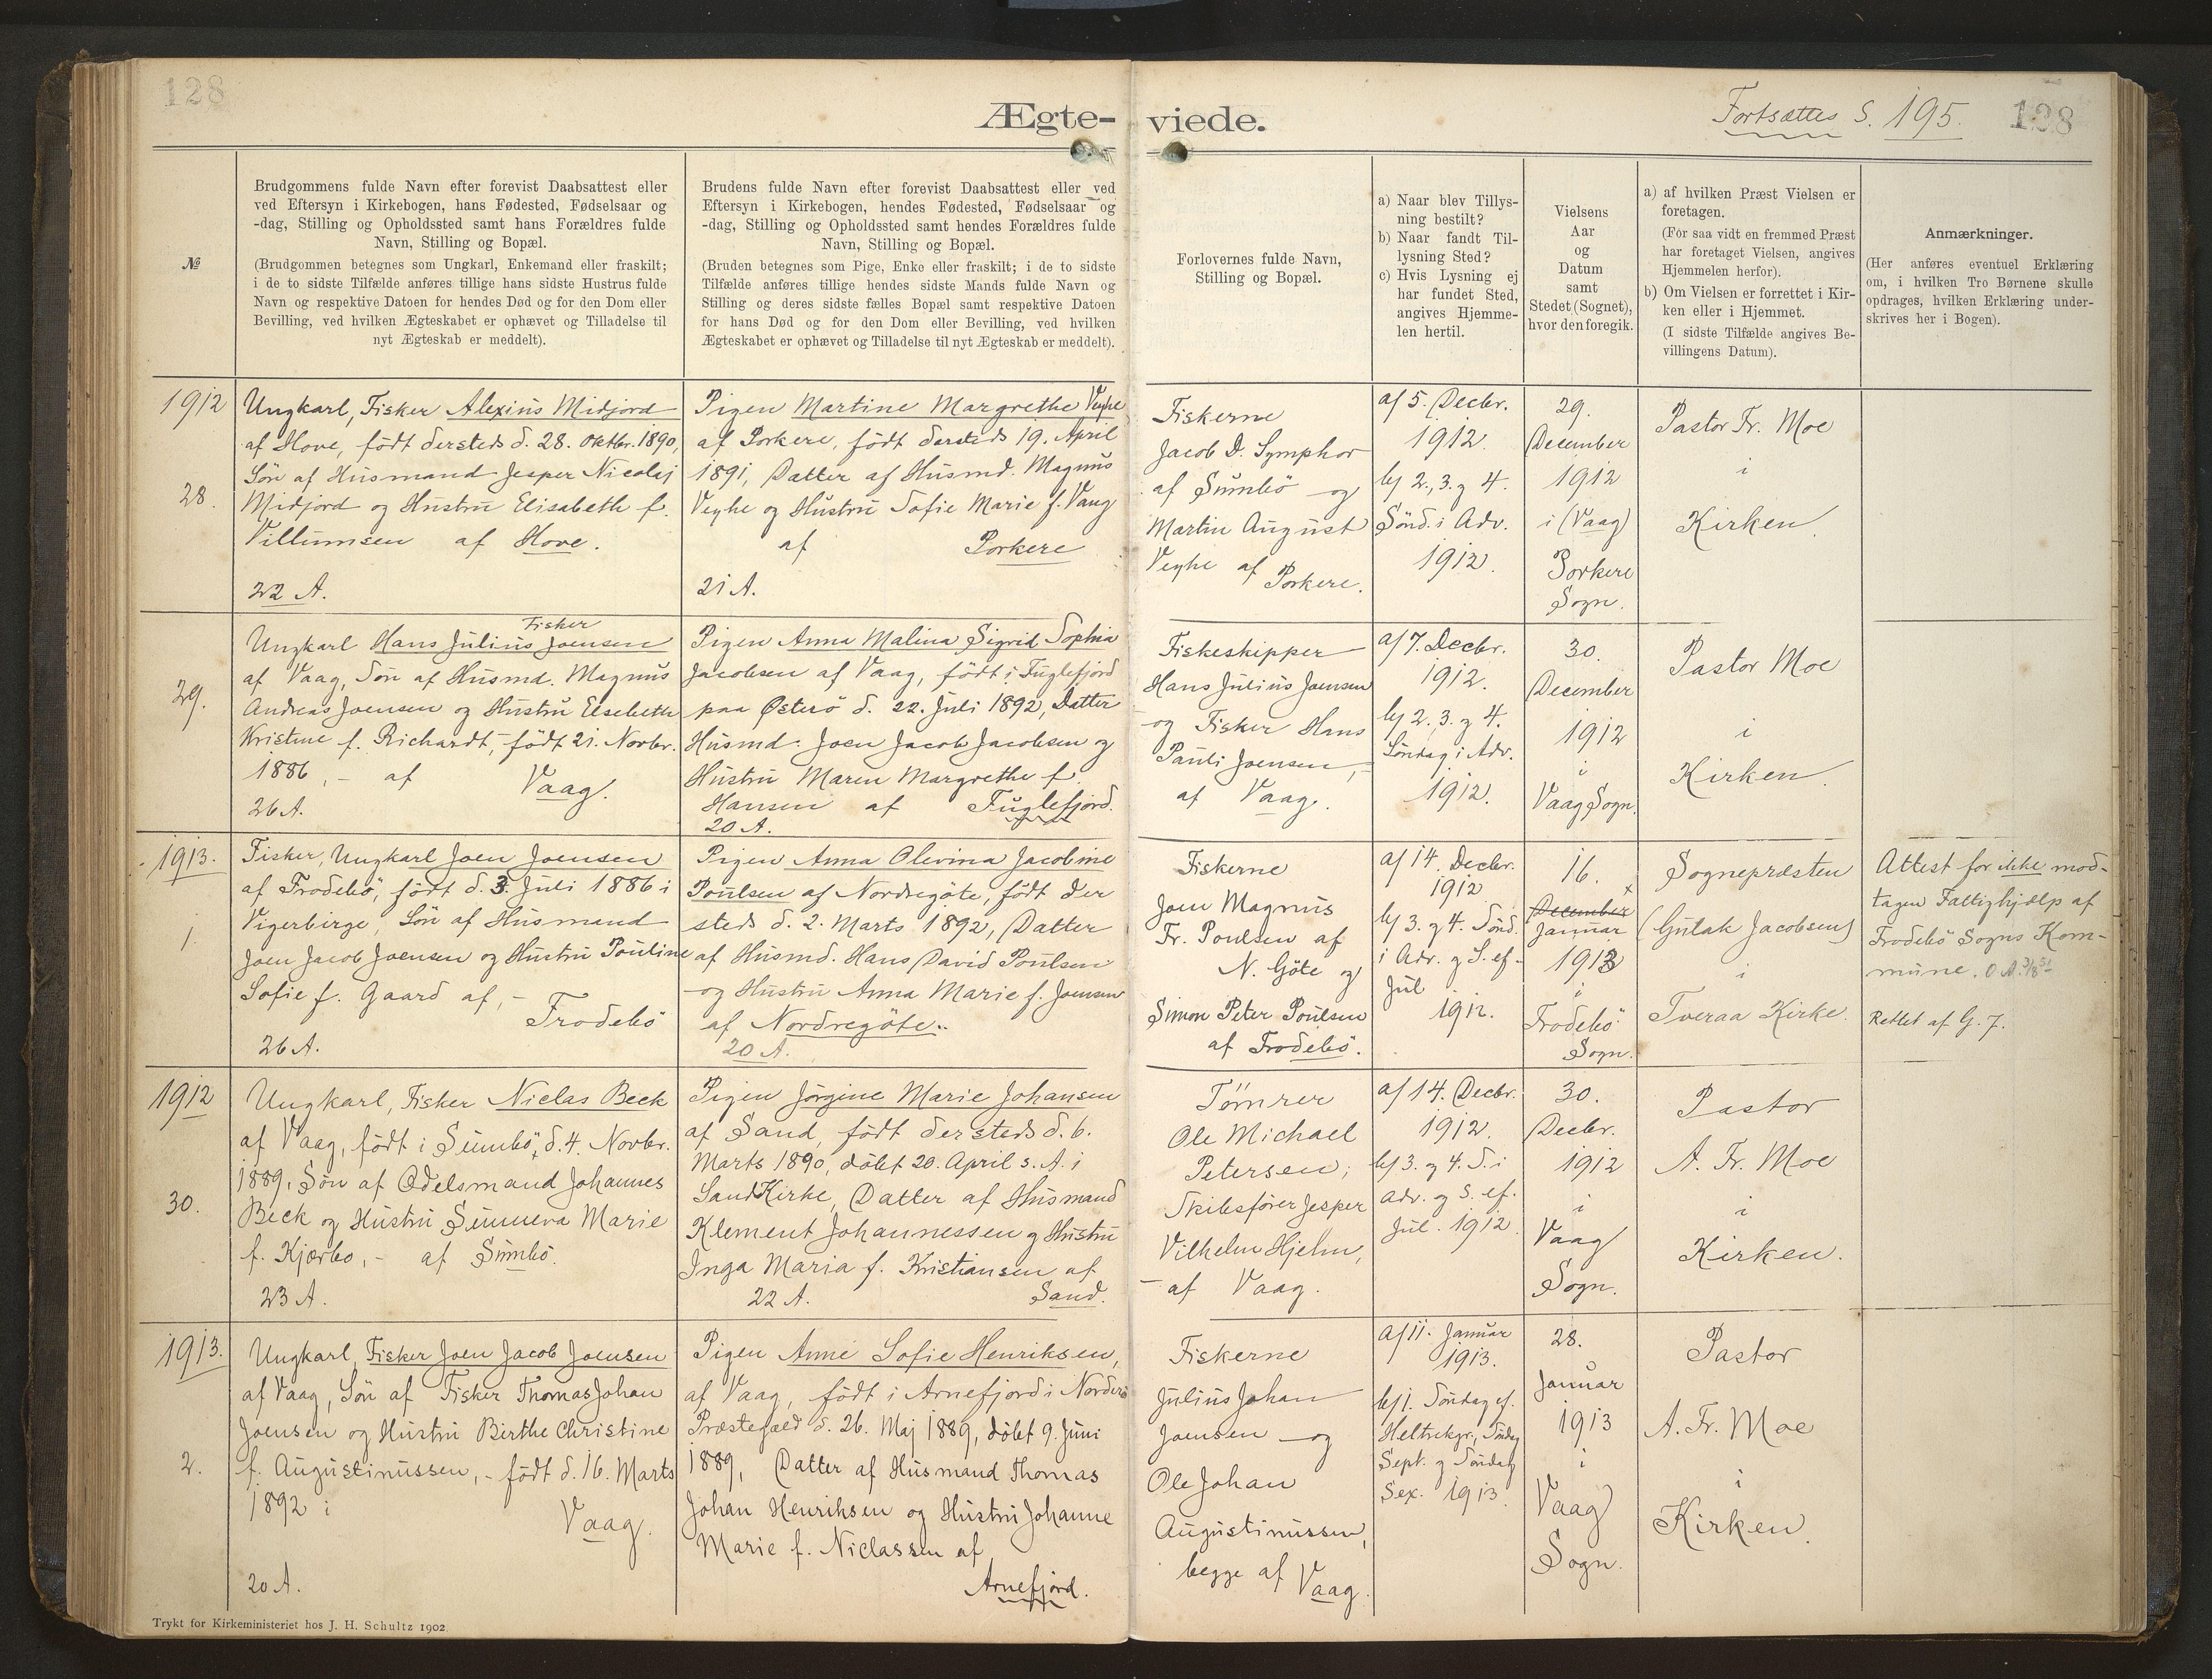 128
Ægte-
viede.
Fortsættes S. 195.
128
№
Brudgommens fulde Navn efter forevist Daabsattest eller
ved Eftersyn i Kirkebogen, hans Fødested, Fødselsaar og
-dag, Stilling og Opholdssted samt hans Forældres fulde
Navn, Stilling og Bopæl.
(Brudgommen betegnes som Ungkarl, Enkemand eller fraskilt;
i de to sidste Tilfælde anføres tillige hans sidste Hustrus fulde
Navn og respektive Datoen for hendes Død og for den Dom eller
Bevilling, ved hvilken Ægteskabet er ophævet og Tilladelse til
nyt Ægteskab er meddelt).
Brudens fulde Navn efter forevist Daabsattest eller ved
Eftersyn i Kirkebogen, hendes Fødested, Fødselsaar og
-dag, Stilling og Opholdssted samt hendes Forældres fulde
Navn, Stilling og Bopæl.
(Bruden betegnes som Pige, Enke eller fraskilt; i de to sidste
Tilfælde anføres tillige hendes sidste Mands fulde Navn og
Stilling og deres sidste fælles Bopæl samt respektive Datoen
for hans Død og for den Dom eller Bevilling, ved hvilken
Ægteskabet er ophævet og Tilladelse til nyt Ægteskab er meddelt).
Forlovernes fulde Navn,
Stilling og Bopæl.
a) Naar blev Tillys-
ning bestilt?
b) Naar fandt Til-
lysning Sted?
c) Hvis Lysning ej
har fundet Sted,
angives Hjemme-
len hertil.
Vielsens
Aar
og
Datum
samt
Stedet (Sognet),
hvor den foregik.
a) af hvilken Præst Vielsen er
foretagen.
(For saa vidt en fremmed Præst
har foretaget Vielsen, angives
Hjemmelen herfor).
b) Om Vielsen er forrettet i Kir-
ken eller i Hjemmet.
(I sidste Tilfælde angives Be-
villingens Datum).
Anmærkninger.
(Her anføres eventuel Erklæring
om, i hvilken Tro Børnene skulle
opdrages, hvilken Erklæring under-
skrives her i Bogen).
1912
28.
Ungkarl, Fisker Alexius Midjord
af Hove, födt dersteds d. 28. Oktbr. 1890,
Sön af Husmand Jesper Nicolaj
Midjord og Hustru Elisabeth f.
Villumsen af Hove.
22 A.
Pigen Martine Margrethe Veyhe
af Porkere, födt dersteds 19. April
1891, Datter af Husmd. Magnus
Veyhe og Hustru Sofie Marie f. Vaag
af Porkere
21 A.
Fiskerne
Jacob D. Symphor
af Sumbö og
Martin August
Veyhe af Porkere.
a) 5. Decbr.
1912.
b) 2., 3. g 4.
Sönd. i Adv.
1912.
29.
December
1912
i (Vaag)
Porkere
Sogn.
Pastor Fr. Moe
i
Kirken.
29.
Fisker
Ungkarl Hans Julius Joensen
af Vaag, Sön af Husmd. Magnus
Andreas Joensen og Hustru Elsebeth
Kristine f. Richardt, födt 21. Novbr.
1886, - af Vaag.
26 A.
Pigen Anna Malina Sigrid Sophia
Jacobsen af Vaag, födt i Fuglefjord
paa Österö d. 22. Juli 1892, Datter
Husmd. Joen Jacob Jacobsen og
Hustru Maren Margrethe f.
Hansen af Fuglefjord.
20 A.
Fiskeskipper
Hans Julius Joensen
og Fisker Hans
Pauli Joensen, -
af Vaag.
a) 7. Decbr.
1912.
b) 2. 3. g 4.
Söndag i Adv.
1912.
30.
December
1912
i
Vaag Sogn.
Pastor Moe
i
Kirken.
1913.
1.
Fisker, Ungkarl Joen Joensen
af Frodebö, födt d. 3. Juli 1886 i
Vigerbirge, Sön af Husmand
Joen Jacob Joensen og Hustru Pouline
Sofie f. Gaard af, -
Frodebö
26 A.
Pigen Anna Olevina Jacobine
Poulsen af Nordregöte, födt der
steds d. 2. Marts 1892, Datter
af Husmd. Hans David Poulsen
og Hustru Anna Marie f. Joensen
af Nordregöte.
20 A.
Fiskerne
Joen Magnus
Fr. Poulsen af
N. Göte og
Simon Peter Poulsen
af Frodebö.
a) 14. Decbr.
1912
b) 3. g 4. Sönd.
i Adv. g S. ef-
Jul
1912.
16.
x
December
Januar
1913
i
Frodebö
Sogn.
Sognepræsten
(Gutak Jacobsen)
i
Tveraa Kirke.
Attest for ikke mod-
tagen Fattighjælp af
Frodebö Sogns Kom-
mune.
Rettet af G. J.
1912
30.
Ungkarl, Fisker Niclas Beck
af Vaag, födt i Sumbö, d. 4. Novbr.
1889, Sön af Odelsmand Johannes
Beck og Hustru Sunneva Marie
f. Kjærbo, - af Sumbö.
23 A.
Pigen Jörgine Marie Johansen
af Sand, födt dersteds d. 6.
Marts 1890, döbt 20. April s. A. i
Sand Kirke, Datter af Husmand
Klement Johannessen g Hustru
Inga Maria f. Kristiansen af
22 A. Sand.
Tömrer
Ole Michael
Petersen,
Skibsförer Jesper
Vilhelm Hjelm,
- af Vaag.
a) 14. Decbr.
1912.
b) 3. g 4. S. i
Adv. g S. ef.
Jul. 1912.
30.
Decbr.
1912
i
Vaag
Sogn.
Pastor
A. Fr. Moe
i
Kirken.
1913.
2.
Ungkarl, Fisker Joen Jacob Joensen
af Vaag, Sön af Fisker Thomas Johan
Joensen og Hustru Birthe Christine
f. Augustinussen, - födt d. 16. Marts
1892 i Vaag.
20 A.
Pigen Anne Sofie Henriksen,
af Vaag, födt i Arnefjord i Norderö
Præstegæld d. 26. Maj 1889, döbt 9. Juni
1889, Datter af Husmand Thomas
Johan Henriksen og Hustru Johanne
Marie f. Niclassen af
Arnefjord.
Fiskerne
Julius Johan
Joensen og
Ole Johan
Augustinussen,
begge af Vaag.
a) 11. Januar
1913.
b) 1. Söndag ef.
Heltrekgr., Söndag
Sept. g Söndag
Sex. 1913.
28.
Januar
1913
i
Vaag
Sogn.
Pastor
A. Fr. Moe
i
Kirken.
Trykt for Kirkeministeriet hos J. H. Schultz 1902.